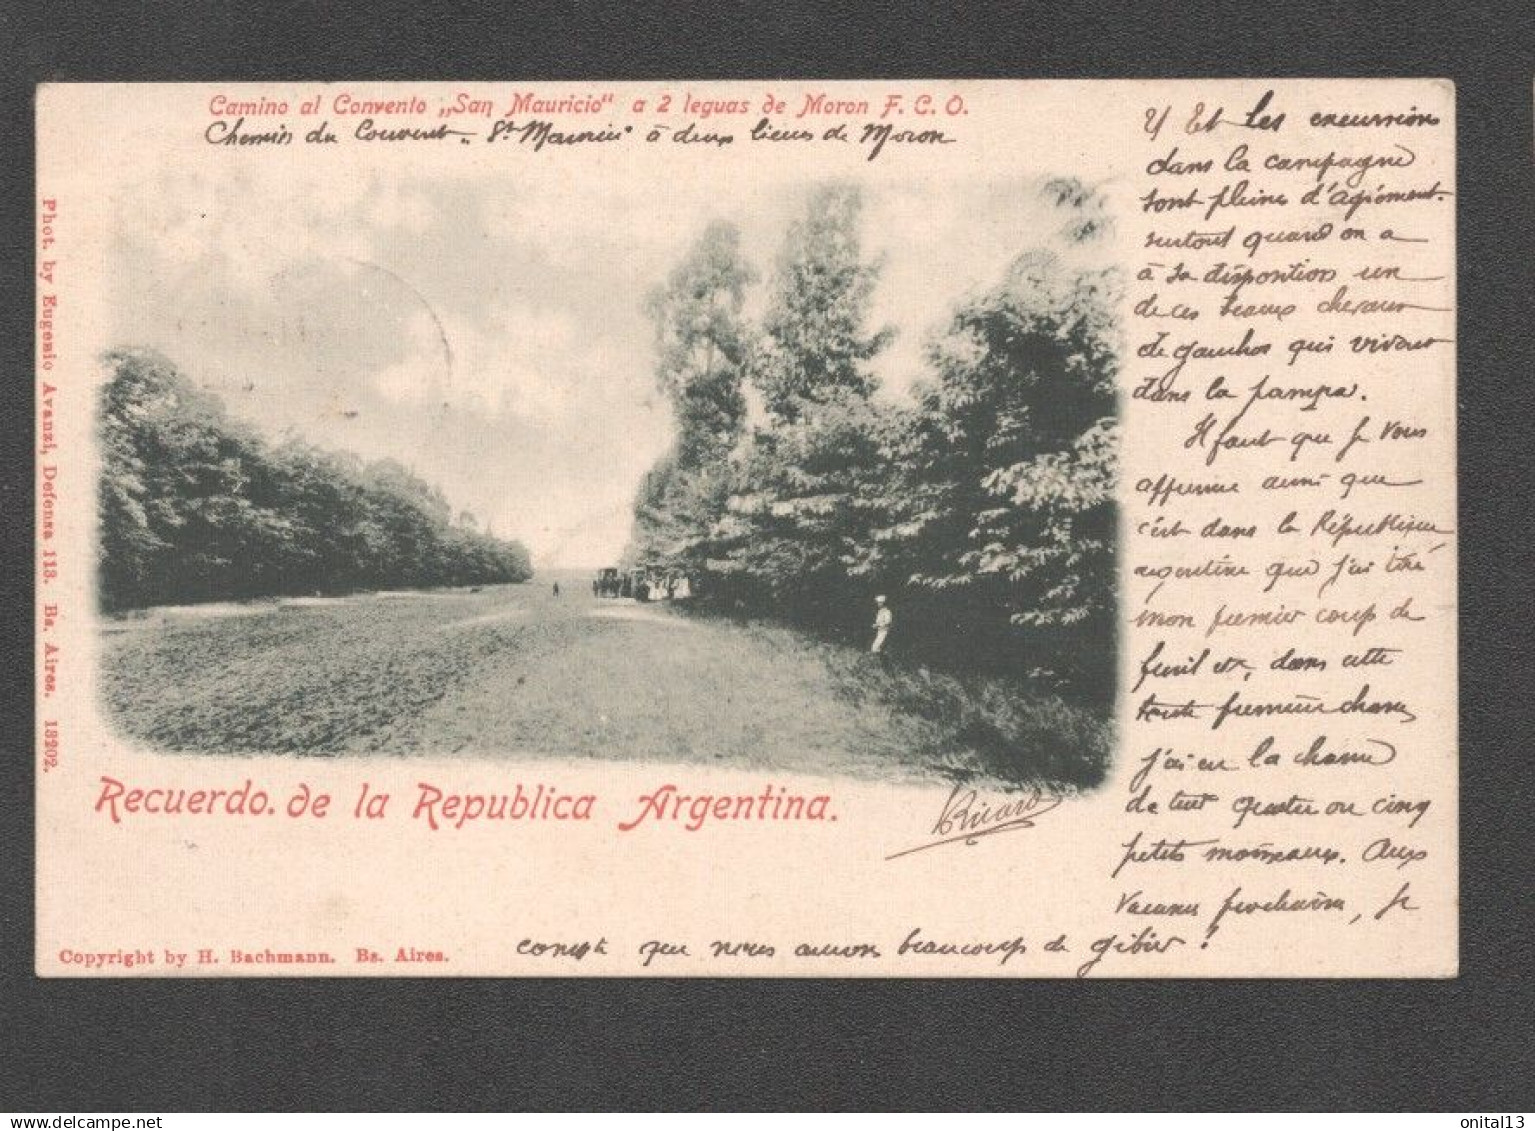 Camino al Convento „San Mauricio" a 2 leguas de Moron F. C. O.
Chemin du Couvent „ St Maurice à deux lieues de Moron
Phot. by Eugenio Avanzi, Defensa 113. Bs. Aires. 13202.
Recuerdo. de la Republica Argentina.
Copyright by H. Bachmann. Bs. Aires.
Et les excursions
dans la campagne
sont pleines d'agrément.
surtout quand on a
à sa disposition un
de ces beaux chevaux
de gauchos qui vivent
dans la pampa.
Il faut que je vous
apprenne aussi que
c'est dans la République
argentine que j'ai tiré
mon premier coup de
fusil et, dans cette
toute première chasse,
j'ai eu la chance
de tuer quatre ou cinq
petits moineaux. Aux
vacances prochaines, je
compte que nous aurons beaucoup de gibier !
onital13